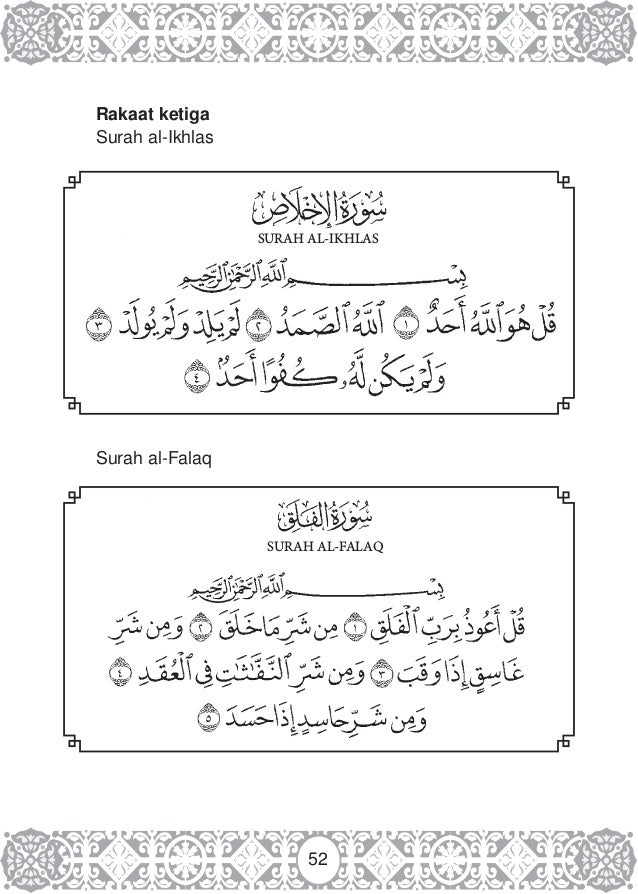 Rakaat ketiga
Surah al-Ikhlas
سُورَةُ الإِخْلَاصِ
SURAH AL-IKHLAS
بِسْمِ ٱللَّهِ ٱلرَّحْمَٰنِ ٱلرَّحِيمِ
قُلْ هُوَ ٱللَّهُ أَحَدٌ ١ ٱللَّهُ ٱلصَّمَدُ ٢ لَمْ يَلِدْ وَلَمْ يُولَدْ ٣
وَلَمْ يَكُن لَّهُۥ كُفُوًا أَحَدٌۢ ٤
Surah al-Falaq
سُورَةُ الفَلَقِ
SURAH AL-FALAQ
بِسْمِ ٱللَّهِ ٱلرَّحْمَٰنِ ٱلرَّحِيمِ
قُلْ أَعُوذُ بِرَبِّ ٱلْفَلَقِ ١ مِن شَرِّ مَا خَلَقَ ٢ وَمِن شَرِّ
غَاسِقٍ إِذَا وَقَبَ ٣ وَمِن شَرِّ ٱلنَّفَّٰثَٰتِ فِى ٱلْعُقَدِ ٤
وَمِن شَرِّ حَاسِدٍ إِذَا حَسَدَ ٥
52